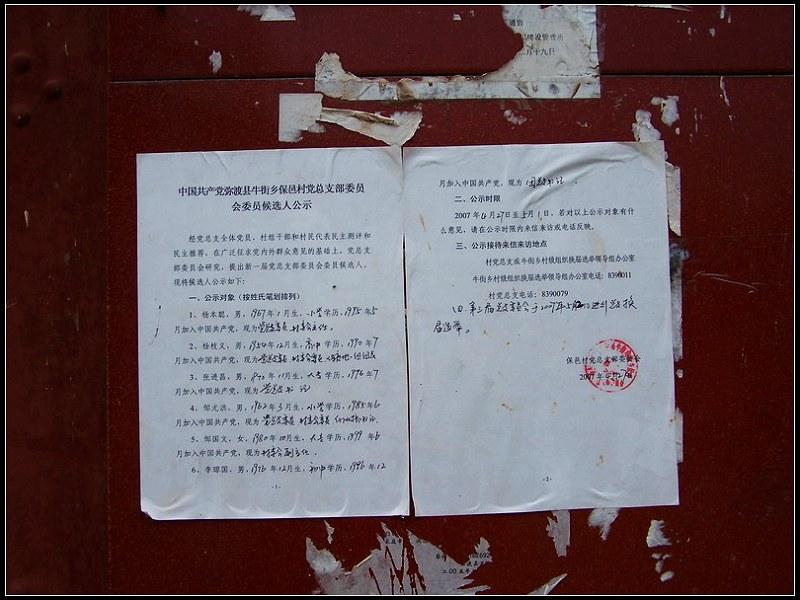 通告
建设管理所
月十九日
中国共产党弥渡县牛街乡保邑村党总支部委员
会委员候选人公示
经党总支全体党员，村组干部和村民代表民主测评和
民主推荐，在广泛征求党内外群众意见的基础上，党总支
部委员会研究，提出新一届党总支部委员会委员候选人，
现将候选人公示如下：
一、公示对象（按姓氏笔划排列）
1、杨本聪，男，1967年1月生，小学学历，1995年5
月加入中国共产党，现为党总支委员 村委会主任。
2、杨枝义，男，1954年12月生，高中学历，1990年7
月加入中国共产党，现为党总支委员 村委会委员
3、张进昌，男，11月生，大专学历，1996年7
月加入中国共产党，现为党总支书记
4、邹光洪，男，1962年3月生，小学学历，1985年6
月加入中国共产党，现为党总支委员 村委会委员
5、邹国文，女，1980年10月生，大专学历，1999年6
月加入中国共产党，现为村委会副主任。
6、李璋国，男，1976年12月生，初中学历，1996年12
-1-
月加入中国共产党，现为团总支书记。
二、公示时限
2007年4月27日至5月1日，若对以上公示对象有什
么意见，请在公示时限内来信来访或电话反映。
三、公示接待来信来访地点
村党总支或牛街乡村级组织换届选举领导组办公室
牛街乡村级组织换届选举领导组办公室电话：8390011
村党总支电话：8390079
四、第三届党总支委员会于2007年5月 日进行总支换
届选举。
保邑村党总支部委员会
2007年4月27日
-2-